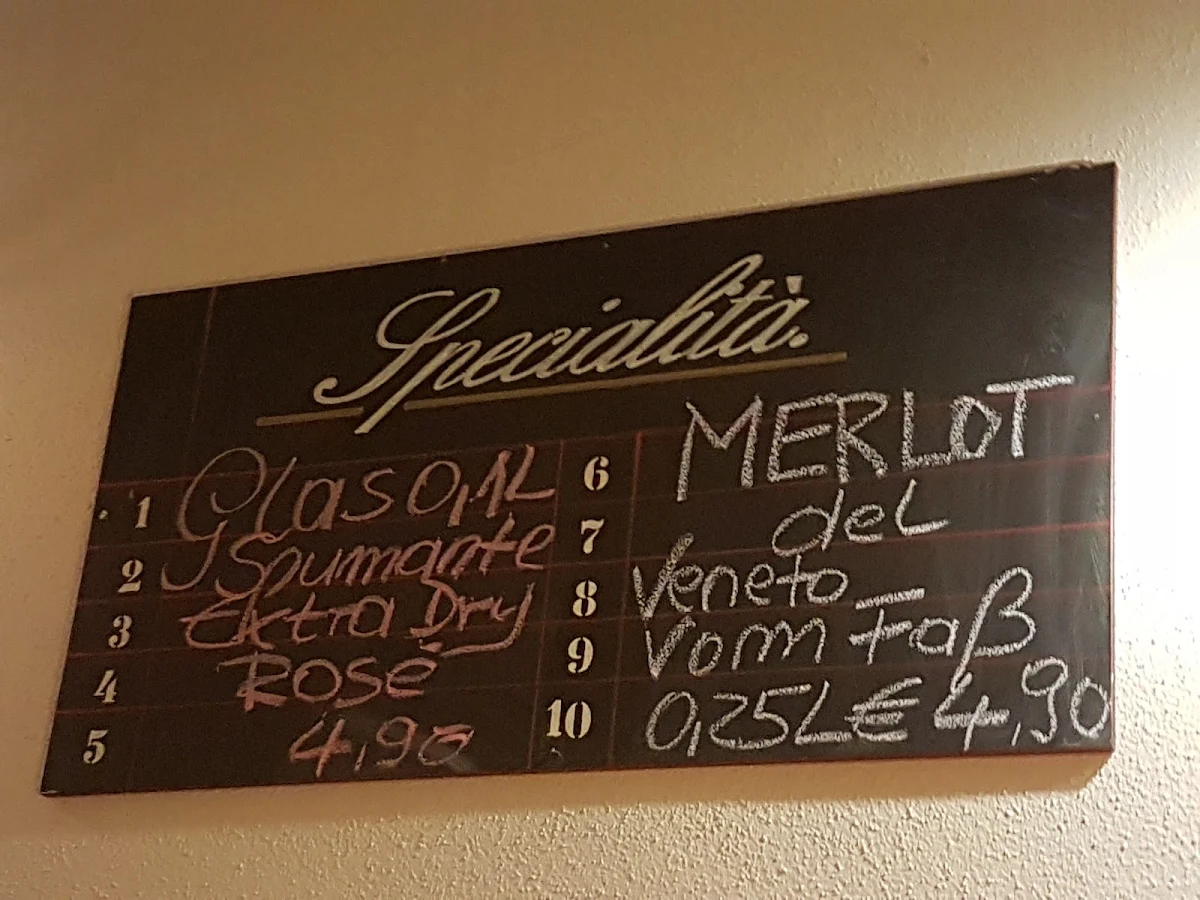 Specialità.
1 Glas 0,1L
2 Spumante
3 Extra Dry
4 Rosé
5 4,90
6 MERLOT
7 del
8 Veneto
9 Vom Faß
10 0,25L € 4,90